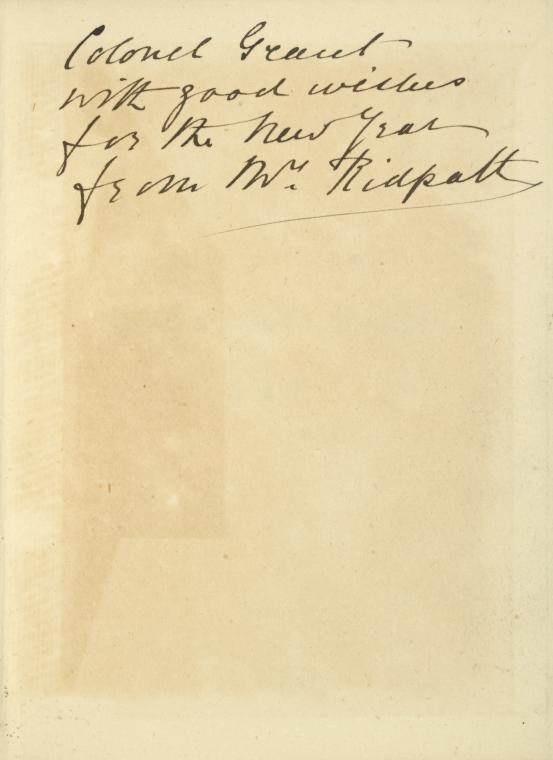 Colonel Grant
with good wishes
for the New Year
from Mr. Ridpath